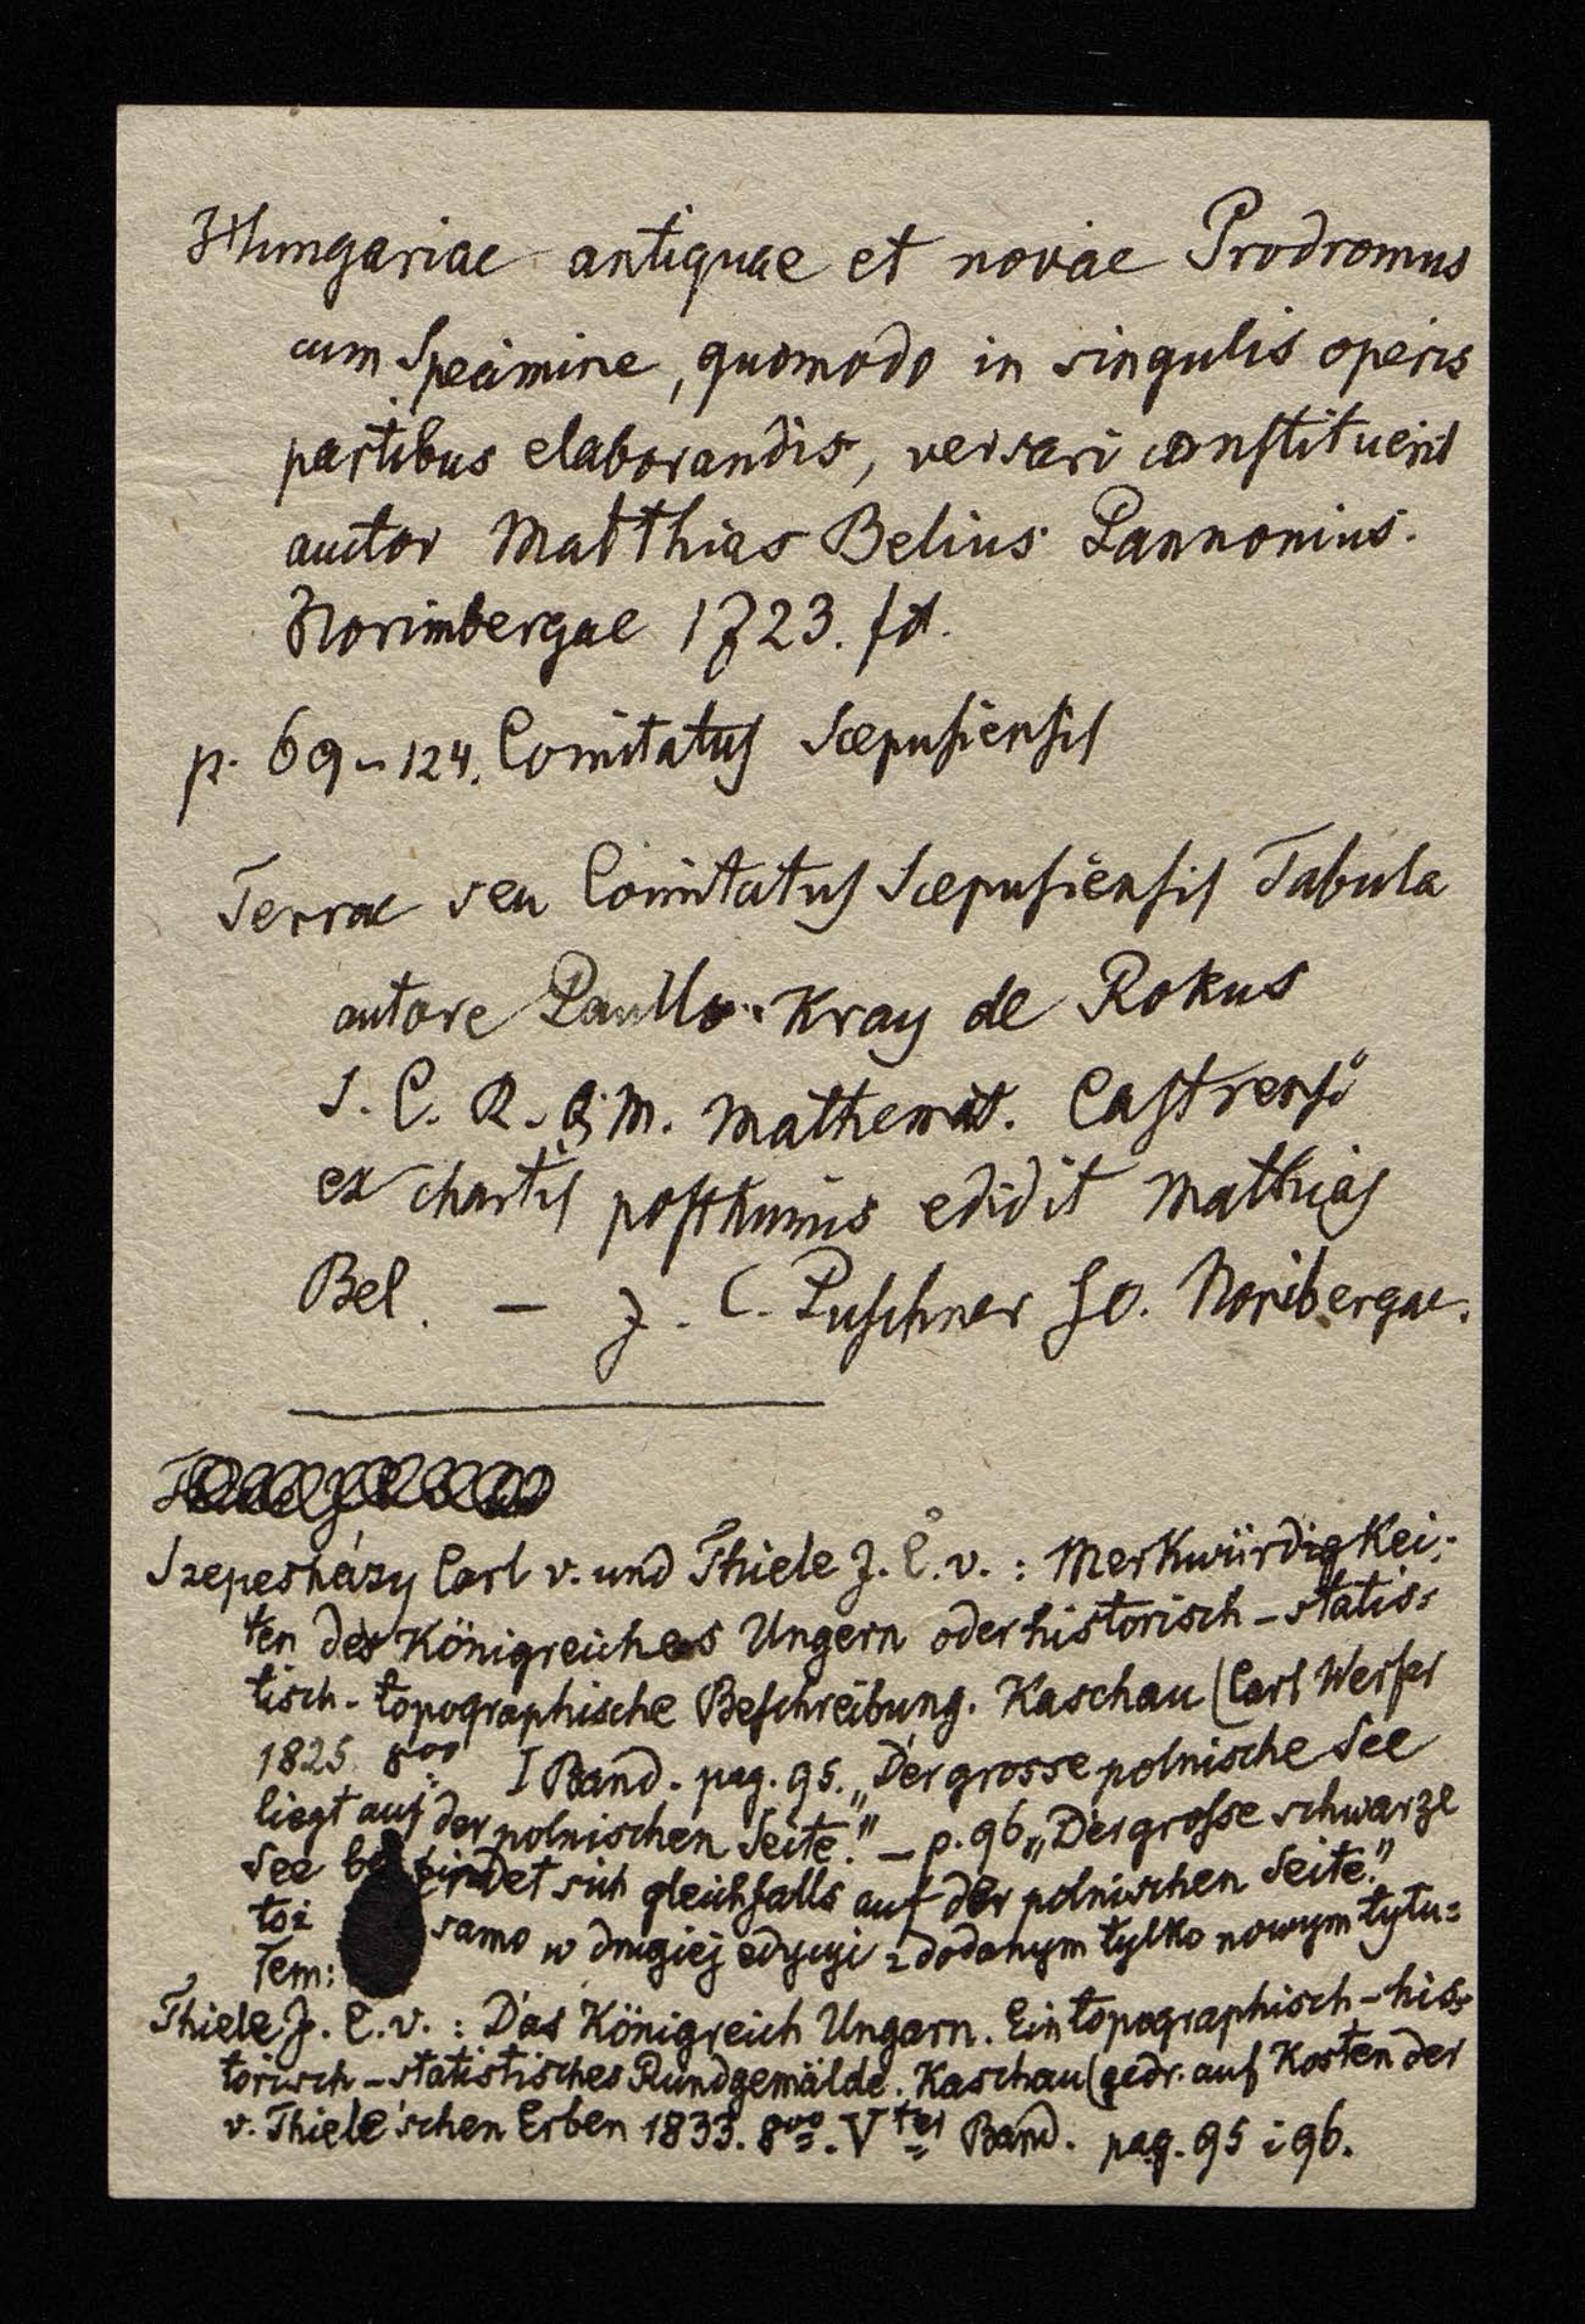 Hungariae antiquae et novae Prodromus
cum Specimine, quomodo in singulis operis
partibus elaborandis, versari constituerit
auctor Matthias Belius Pannonius.
Norimbergae 1723. fol.
p. 69-124. Comitatus Scepusiensis
Terrae seu Comitatus Scepusiensis Tabula
autore Paullo Kray de Rokus
S. C. R. Q. M. Mathemat. Castrensi
ex chartis posthumis edidit Mathias
Bel. — J. C. Puschner sc. Noribergae.
Szepesházy Carl v. und Thiele J. C. v. : Merkwürdigkei-
ten des Königreiches Ungern oder historisch-statis-
tisch-topographische Beschreibung. Kaschau (Carl Werfer
1825. 8vo I Band. pag. 95. „Der grosse polnische See
liegt auf der polnischen Seite." — p. 96 „Der grosse schwarze
See befindet sich gleichfalls auf der polnischen Seite."
toż samo w drugiej edycyi z dodanym tylko nowym tytu-
łem:
Thiele J. C. v. : Das Königreich Ungarn. Ein topographisch-his-
torisch-statistisches Rundgemälde. Kaschau (gedr. auf Kosten der
v. Thiele'schen Erben 1833. 8vo. Vter Band. pag. 95 i 96.